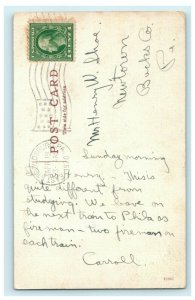 POST CARD
This side for address.
Mr Henry W. Shoe.
Newtown
Bucks Co.
Pa.
Sunday morning
Henry. This is
quite different from
sledging. We leave on
the next train to Phila as
fireman - two fireman on
each train.
Carroll.